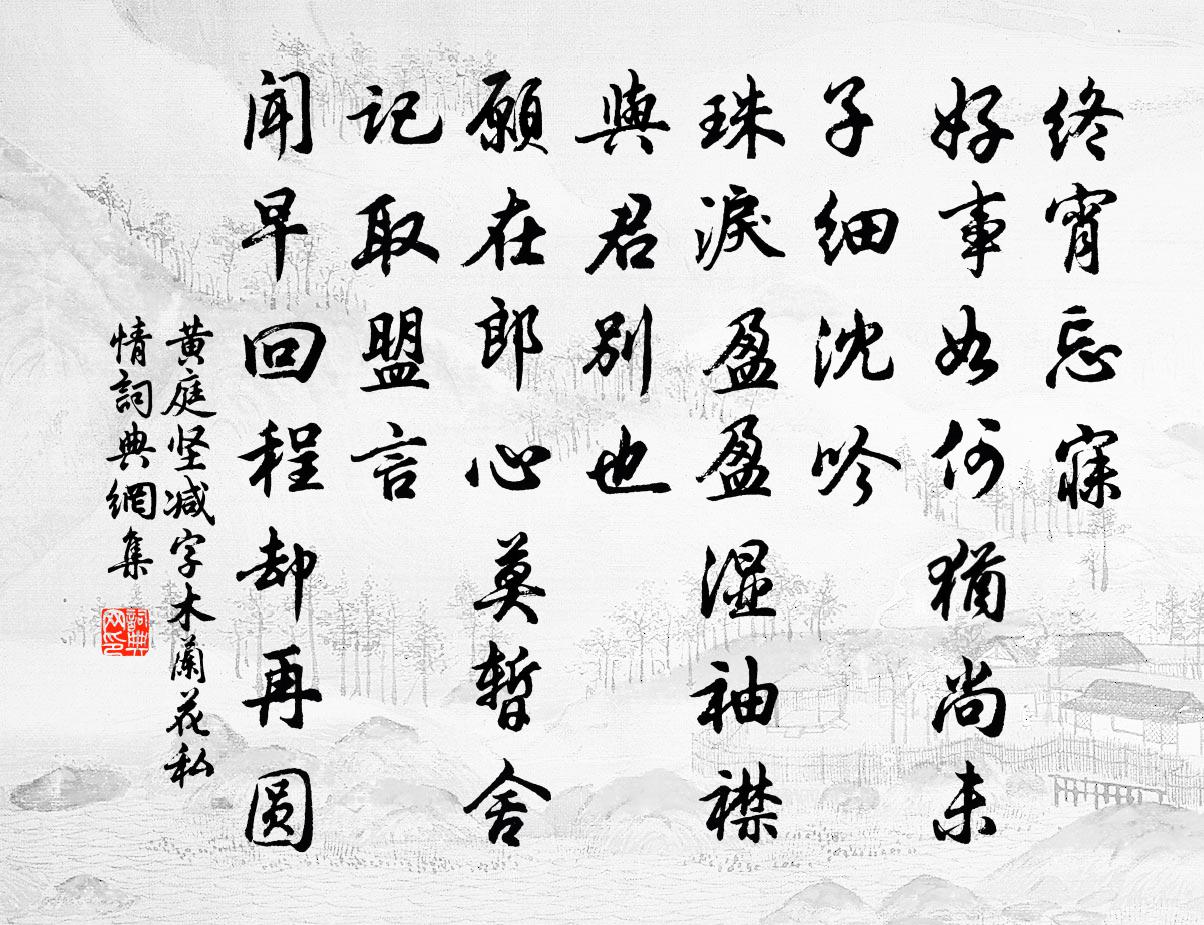 终宵忘寐
好事如何犹尚未
子细沈吟
珠淚盈盈湿袖襟
與君别也
願在郎心莫暫舍
记取盟言
闻早回程却再圆
黄庭坚减字木蘭花私
情詞典網集
詞典
网印